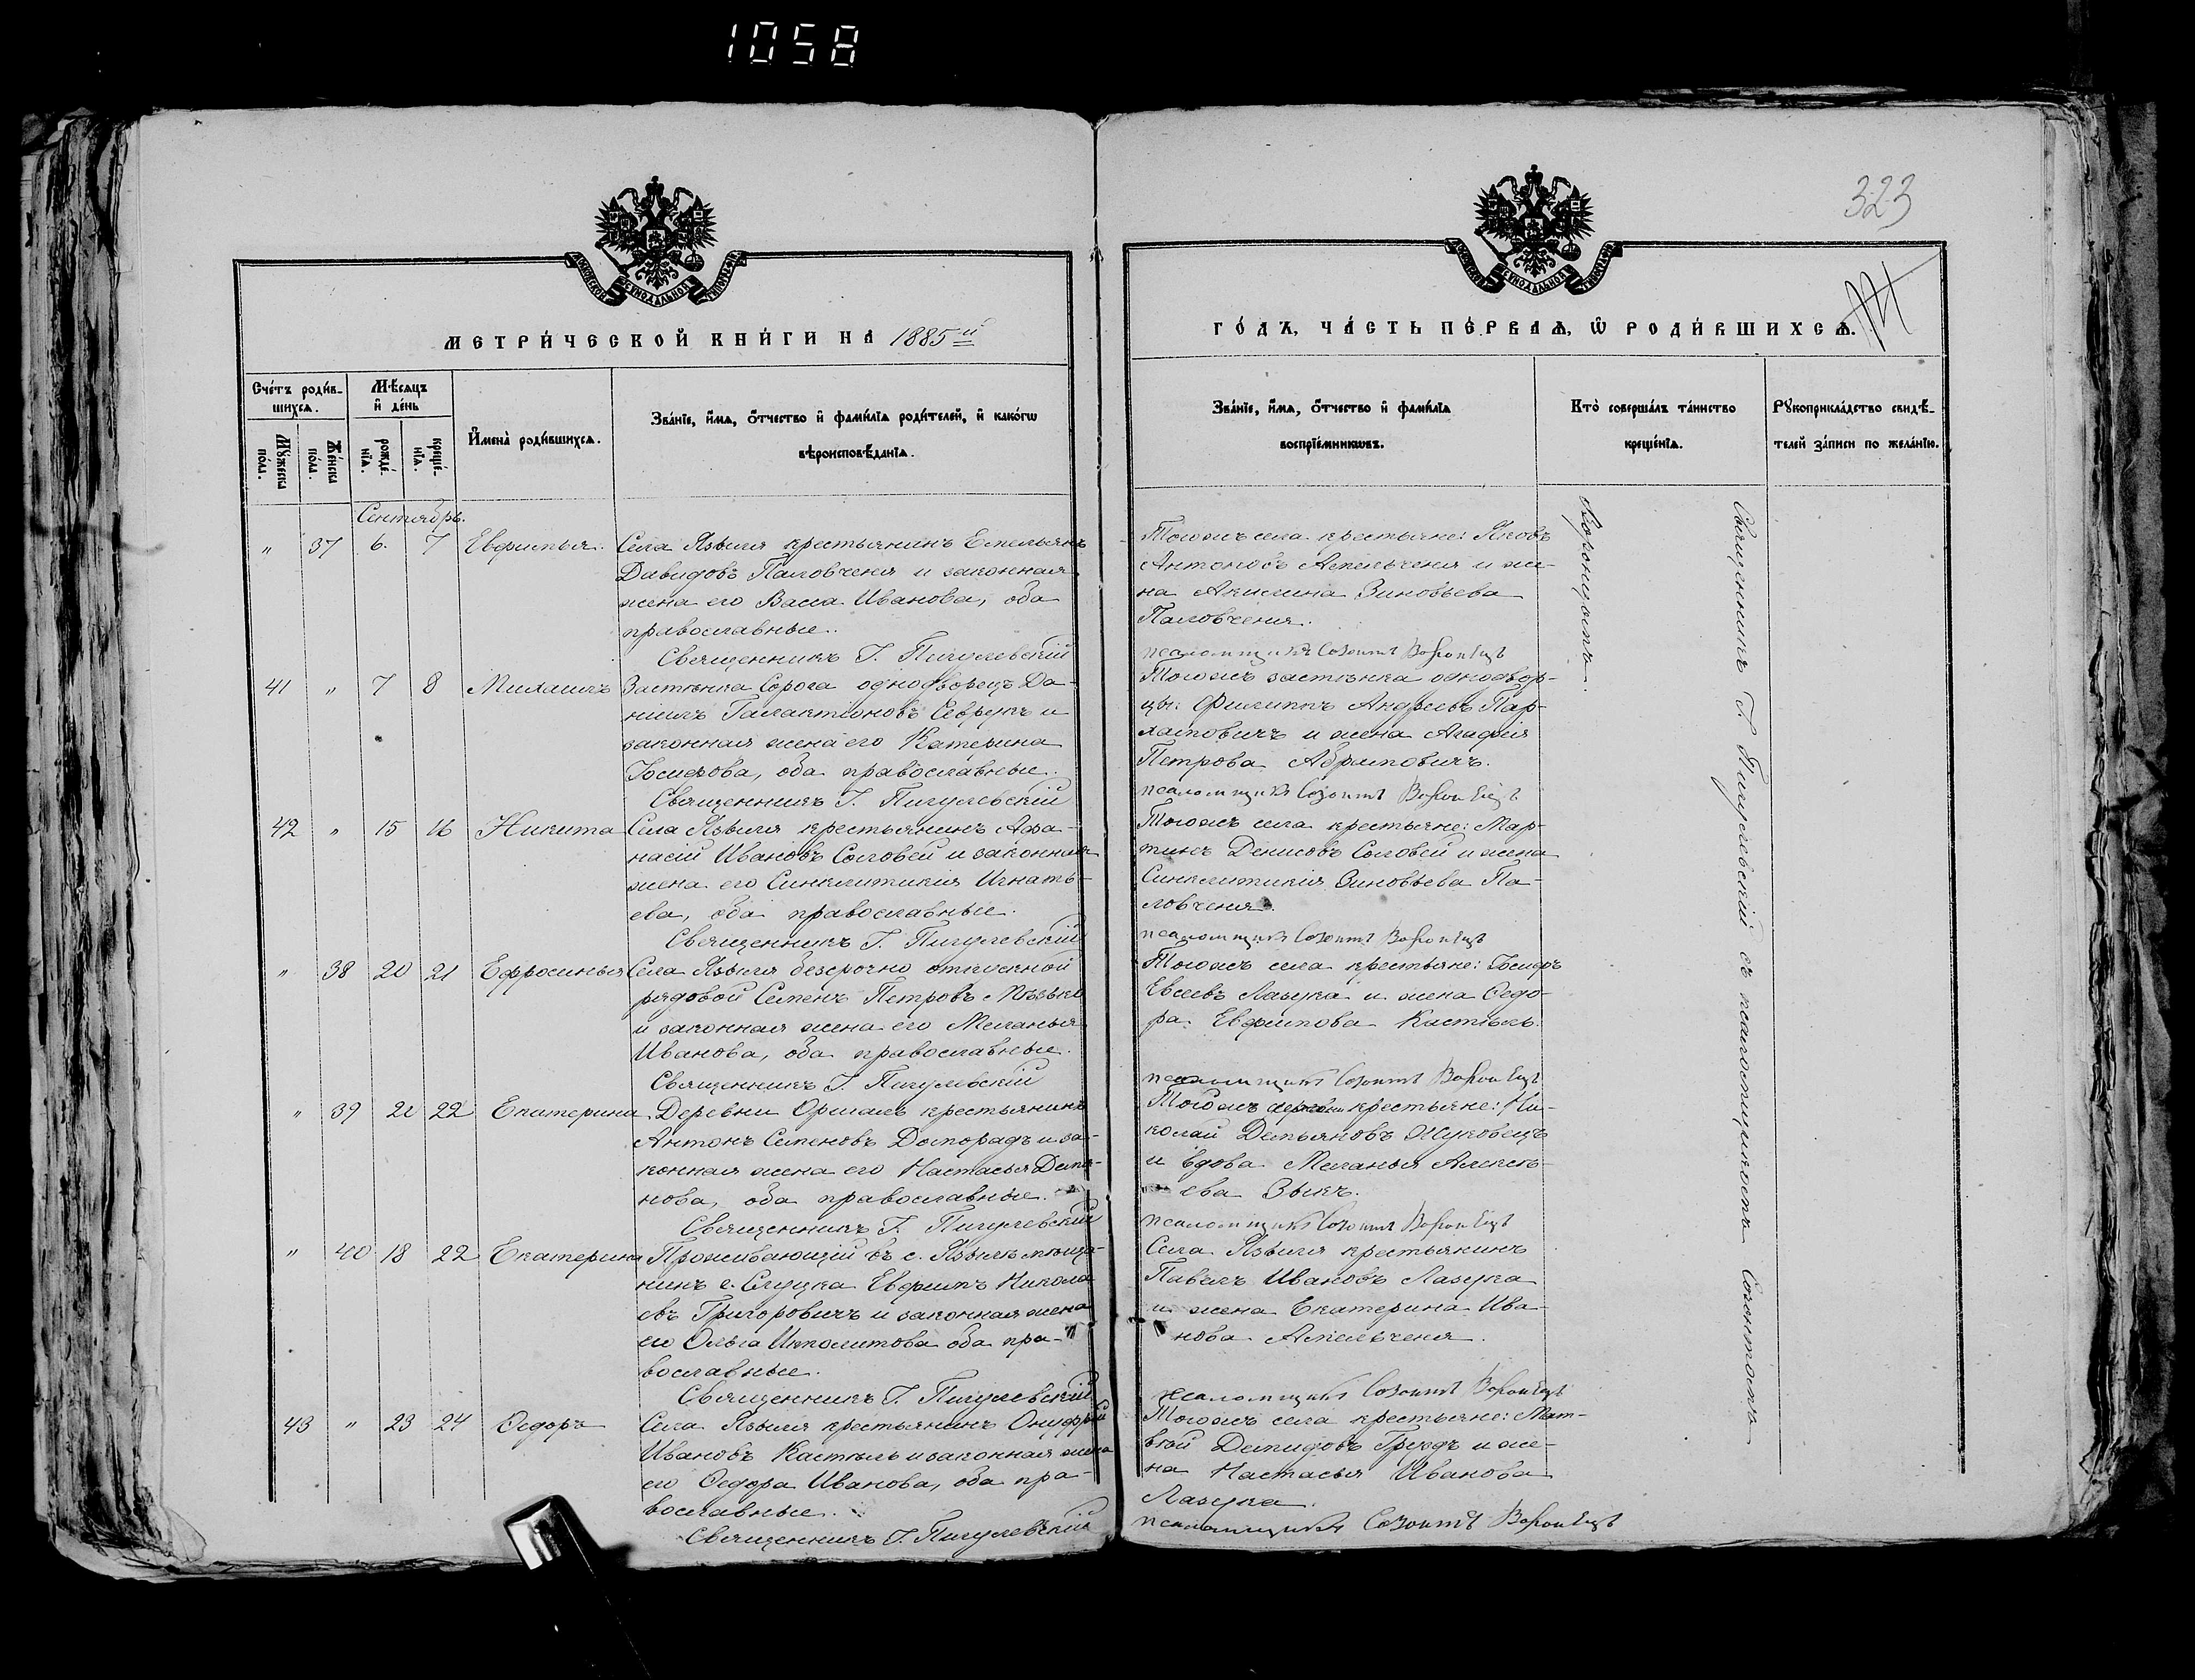 1058
323
МЕТРИ́ЧЕСКОЙ КНИ́ГИ НА́ 1885й
ГО́ДЪ, ЧА́СТЬ ПЕ́РВАѦ, Ѽ РОДИ́ВШИХСѦ.
Сче́тъ роди́в-
шихсѧ.
Мꙋ́жеска по́ла.
Же́нска по́ла.
Мѣ́сѧцъ
и҆ де́нь
рожде́нїѧ.
креще́нїѧ.
И҆мена̀ роди́вшихсѧ.
Зва́нїе, и҆́мѧ, ѻ҆́тчество и҆ фами́лїѧ роди́телей, и҆ како́гѡ
вѣроисповѣ́данїѧ.
Зва́нїе, и҆́мѧ, ѻ҆́тчество и҆ фами́лїѧ
воспрїе́мникѡвъ.
Кто̀ соверша́лъ та́инство
креще́нїѧ.
Рꙋкоприкла́дство свидѣ́-
телей за́писи по жела́нїю.
Сентябрь.
" 37 6. 7 Евфимья. Села Язвиля крестьянинъ Емельянъ
Давидовъ Паловченя и законная
жена его Васса Иванова, оба
православные.
Священникъ Г. Пигулевскій
Тогожъ села крестьяне: Яковъ
Антоновъ Ампельченя и же-
на Акилина Зиновьева
Паловченя.
псаломщикъ Созонтъ Воронецъ
41 " 7 8 Михаилъ Застѣнка Сорога однодворецъ Да-
ніилъ Галактіоновъ Севрукъ и
законная жена его Катерина
Іосифова, оба православные.
Священникъ Г. Пигулевскій
Тогожъ застѣнка однодвор-
цы: Филиппъ Андреевъ Пар-
хамовичъ и жена Агафія
Петрова Абрамовичъ.
псаломщикъ Созонтъ Воронецъ
42 " 15 16 Никита Села Язвиля крестьянинъ Афа-
насій Ивановъ Соловей и законная
жена его Синклитикія Игнать-
ева, оба православные.
Священникъ Г. Пигулевскій
Тогожъ села крестьяне: Мар-
тинъ Денисовъ Соловей и жена
Синклитикія Зиновьева Па-
ловченя.
псаломщикъ Созонтъ Воронецъ
" 38 20 21 Ефросинья Села Язвиля безсрочно отпускной
рядовой Семенъ Петровъ
и законная жена его Меланья
Иванова, оба православные.
Священникъ Г. Пигулевскій
Тогожъ села крестьяне: Іосифъ
Евсеевъ Лазука и жена Ѳедо-
ра Евфимова Кастѣль.
псаломщикъ Созонтъ Воронецъ
" 39 21 22 Екатерина Деревни Оршаль крестьянинъ
Антонъ Семеновъ Доморадъ и за-
конная жена его Настасья Демья-
нова, оба православные.
Священникъ Г. Пигулевскій
Тойжъ деревни крестьяне: Ни-
колай Демьяновъ Жуковецъ
и вдова Меланья Алексѣ-
ева Зыкъ.
псаломщикъ Созонтъ Воронецъ
" 40 18 22 Екатерина Проживающій въ с. Язвилѣ мѣща-
нинъ г. Слуцка Евфимъ Никола
евъ Григоровичъ и законная жена
его Ольга Ипполитова оба пра-
вославные.
Священникъ Г. Пигулевскій
Села Язвиля крестьянинъ
Павелъ Ивановъ Лазука
и жена Екатерина Ива-
нова Ампельченя.
псаломщикъ Созонтъ Воронецъ
43 " 23 24 Ѳедоръ Села Язвиля крестьянинъ Онуфрій
Ивановъ Кастѣль и законная жена
его Ѳедора Иванова, оба пра-
вославные.
Священникъ Г. Пигулевскій
Тогожъ села крестьяне: Мат-
вѣй Демидовъ Груздъ и же-
на Настасья Иванова
Лазука.
псаломщикъ Созонтъ Воронецъ
Священникъ Г. Пигулевскій съ псаломщикомъ Созонтомъ
Воронцомъ.